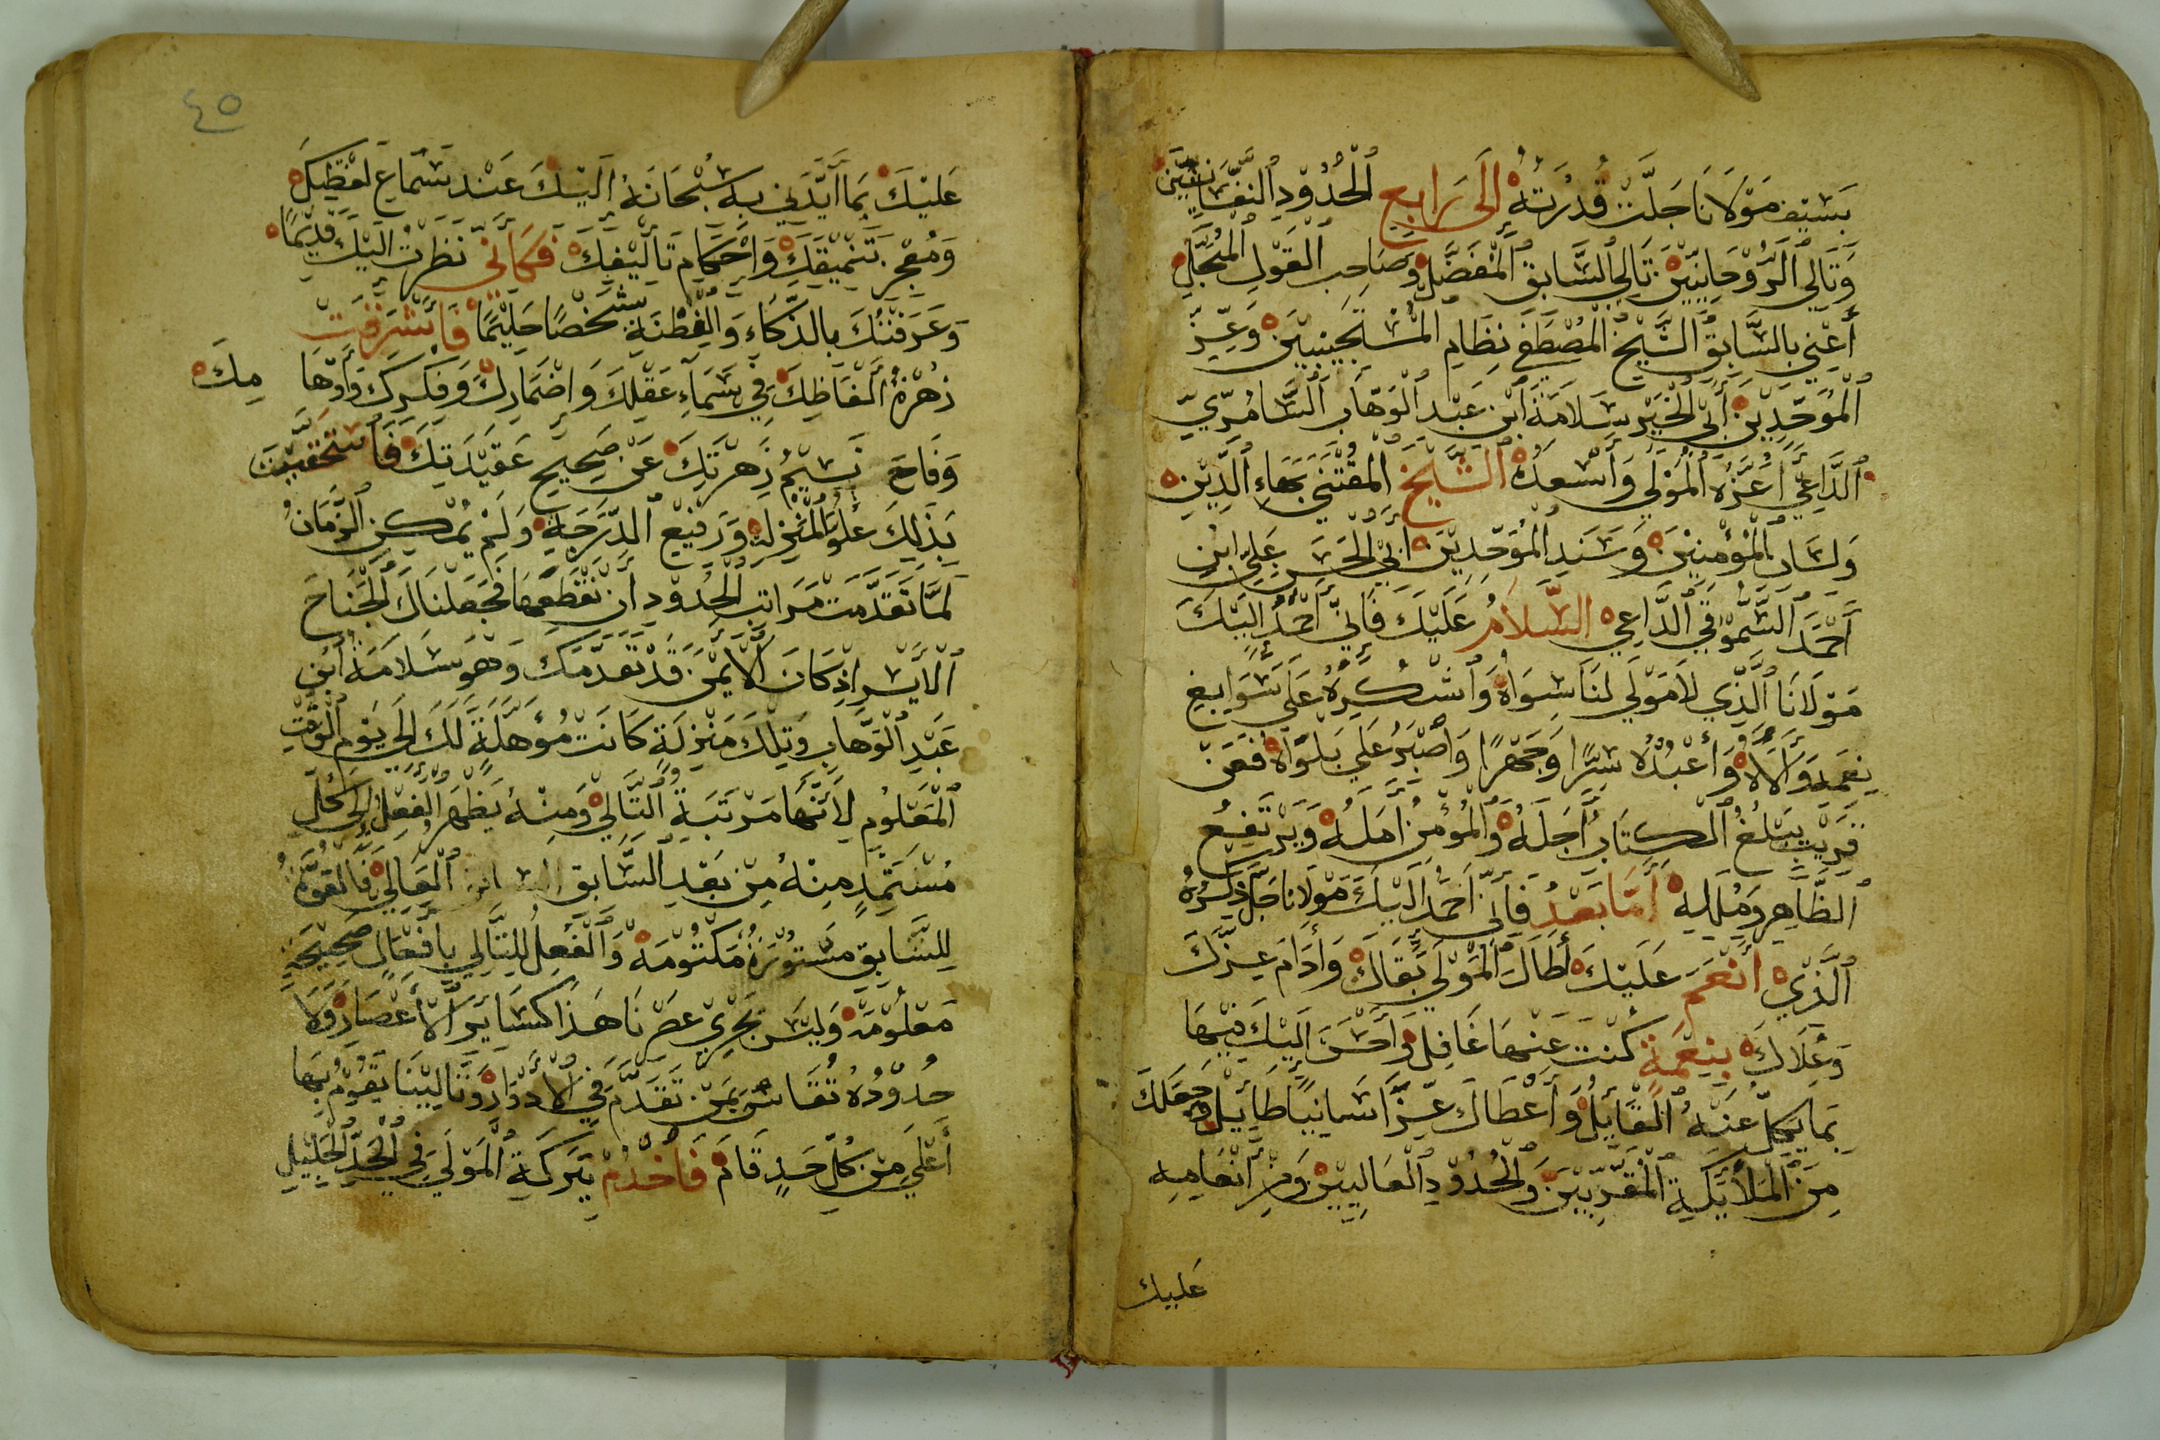 بسيف مولانا جلّت قدرته الى رابع الحدود النفسانيين
وتالي الروحانيين تالي السابق المفضل وصاحب القول المبجل
أعني بالسابق الشيخ المصطفى نظام المستجيبين وعز
الموحدين أبي الخير سلامة ابن عبد الوهاب السامري
الداعي أعزه المولي وأسعده الشيخ المقتني بهاء الدين
ولسان المؤمنين وسند الموحدين ابي الحسن علي ابن
أحمد السموقي الداعي السلام عليك فاني أحمد اليك
مولانا الذي لا مولي لنا سواه وأشكره علي سوابغ
نعمه وآلاه وأعبده سرا وجهرا وأصبر علي بلواه فعن
قريب يبلغ الكتاب أجله والمؤمن أمله ويرتفع
الظاهر وملله أما بعد فاني أحمد اليك مولانا جل ذكره
الذي أنعم عليك أطال المولي بقاك وأدام عزك
وعلاك بنعمة كنت عنها غافل وأحسن اليك فيها
بما يكل عنه القايل وأعطاك عزا سانيا طايل وجعلك
من الملائكة المقربين والحدود العاليين ومن انعامه
عليك
٤٥
عليك بما أيدني به سبحانه اليك عند سماع لفظك
ومعجز تنميقك وإحكام تأليفك فكأني نظرت إليك قديما
وعرفتك بالذكاء والفطنة شخصا حليما فأشرقت
زهرة ألفاظك في سماء عقلك واضمارك وفكرك وأوهامك
وفاح نسيم زهرتك عن صحيح عقيدتك فاستحقيت
بذلك علو المنزلة ورفيع الدرجة ولم يمكن الزمان
لما تقدمت مراتب الحدود أن نقطعها فجعلناك الجناح
الأيسر إذ كان الأيمن قد تقدمك وهو سلامة أبن
عبد الوهاب وتلك منزلة كانت مؤهلة لك إلي يوم الوقت
المعلوم لأنها مرتبة التالي ومنه يظهر الفعل إلي كل
مستمد منه من بعد السابق العالي فالقوة
للسابق مستورة مكتومة والفعل للتالي بافعال صحيحة
معلومة وليس يجري عصرنا هذا كساير الأعصار ولا
حدوده تقاس بمن تقدم في الأدوار وتالينا يقوم بها
أعلي من كل حد قام فأخدم ببركة المولي في الحد الجليل